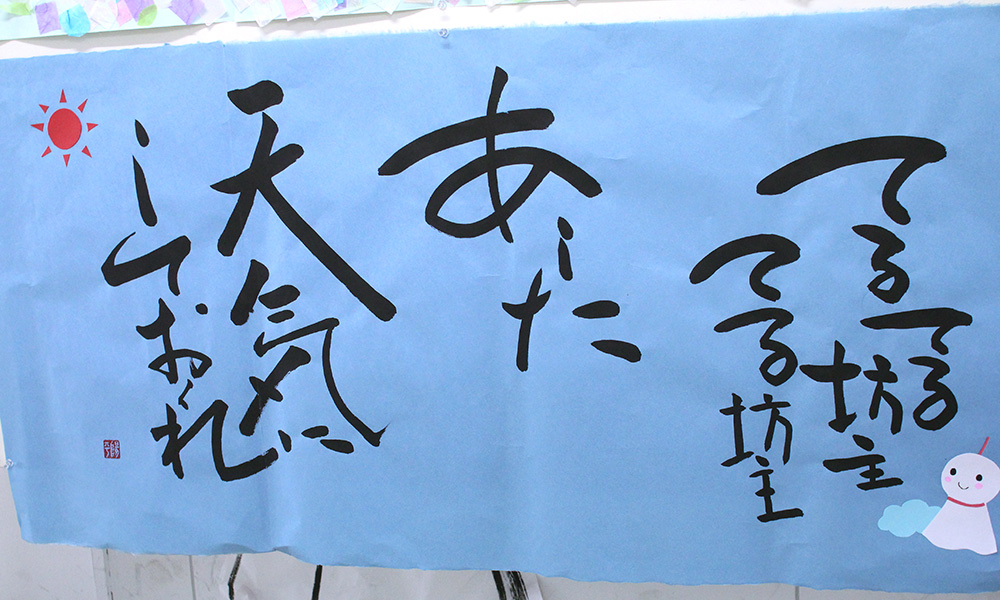 てるてる坊主
てる坊主
あした
天気に
しておくれ